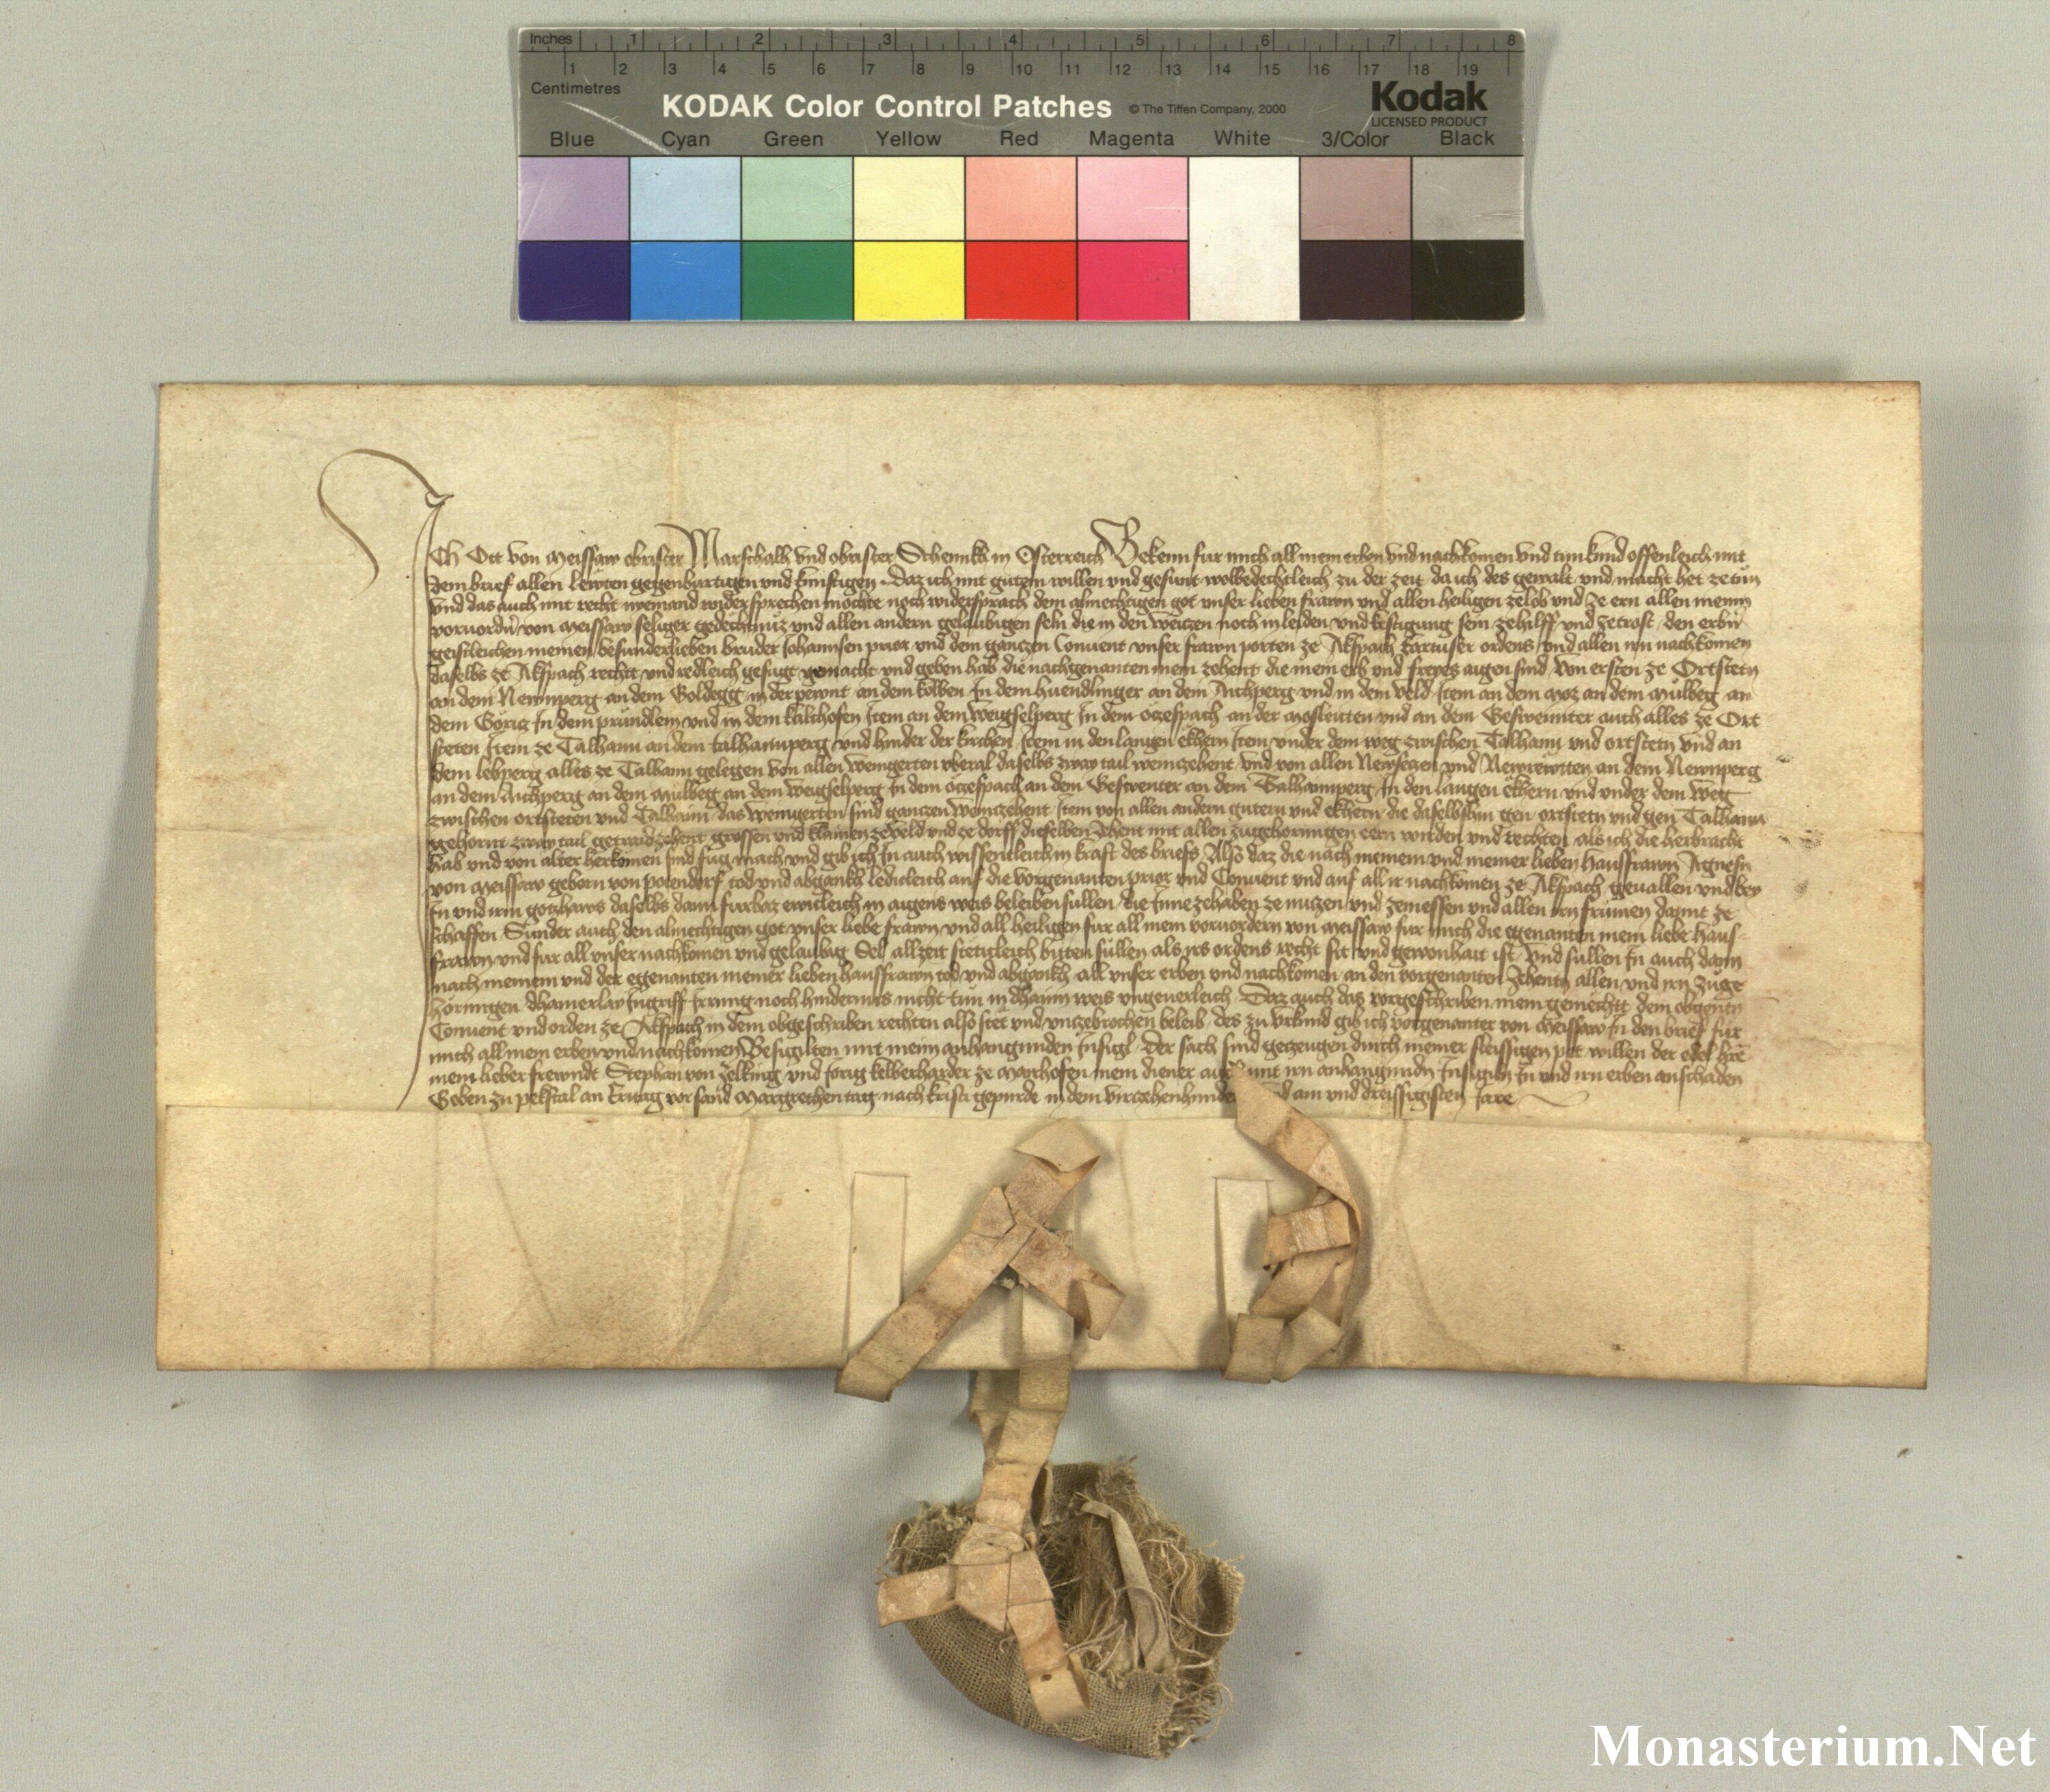 Inches 1 2 3 4 5 6 7 8
1 2 3 4 5 6 7 8 9 10 11 12 13 14 15 16 17 18 19
Centimetres
KODAK Color Control Patches © The Tiffen Company, 2000 Kodak
LICENSED PRODUCT
Blue Cyan Green Yellow Red Magenta White 3/Color Black
Ich Ott von Meissaw obrister Marschalh vnd obrister Schennkh in Osterreich Bekenn fur mich all mein erben vnd nachkomen vnd tun kund offenleich mit
dem brief allen lewten gegenburtigen vnd kunftigen Daz ich mit gutem willen vnd gesunt wolbedechtleich zu der zeit da ich des gewalt vnd macht het ze tun
vnd das auch mit recht niemand widersprechen mochte noch widersprach dem almechtigen got vnser lieben frawn vnd allen heiligen ze lob vnd ze ern allen meinn
voruordn von Meissaw seliger gedechtnüz vnd allen andern gelaubigen seln die in den weitzen noch in leiden vnd kestigung sein ze hilff vnd ze trost den erbn
geistleichen meinen besunderlieben bruder Johannsen prior vnd dem ganczen Conuent vnser frawn porten ze Akspach kartuser ordens vnd allen irn nachkomen
daselbs ze Akspach recht vnd redleich gefugt gemacht vnd geben hab die nachgenanten mein zehent die mein erb vnd freyes aigen sind Von ersten ze Ortsteten
an dem Newnperg an dem Goldegg in der pewnt an dem kolben In dem huendlinger an dem Aichperg vnd in dem veld Item an dem Moz an dem Mulbeg an
dem Göritz In dem prundlein vnd in dem kalchofen Item an dem weigselperg In dem oczespach an der Mosleitten vnd an dem Gesweintter auch alles ze Ort
steten Item ze Talhaim an dem talhaimperg vnd hinder der kirchen Item in den langen ekhern Item vnder dem weg zwischen Talhaim vnd ortstetn vnd an
dem lebperg alles ze Talhaim gelegen von allen weingerten vberal daselbs zway tail weinzehent vnd von allen Newsetzen vnd Newrewtten an dem Newnperg
an dem Aichperg an dem Mulbeg an dem weigselperg In dem oczespach an dem Gesweinter an dem Talhaimperg In den langen ekhern vnd vnder dem weg
zwischen ortsteten vnd Talhaim das weingerten sind ganczen weinzehent Item von allen andern gutern vnd ekhern die daselbshin gen ortstetn vnd gen Talhaim
gehornt zway tail getraidzehent grossen vnd klainen ze veld vnd ze dorff dieselben zehent mit allen zugehorungen eern wirden vnd rechten als ich die herbracht
hab vnd von alter herkömen sind fug mach vnd gib ich In auch wissentleich in kraft des briefs Also daz die nach meinem vnd meiner lieben hausfrawn Agnesn
von Meissaw geborn von potendorf tod vnd abgankh ledicleich auf die vorgenanten prior vnd Conuent vnd auf all ir nachkomen ze Akspach geuallen vnd bey
In vnd irm gotzhaws daselbs dann furbaz ewicleich in aigens weis beleiben sullen die Inne ze haben ze nutzen vnd ze niessen vnd allen irn frumen damit ze
schaffen Sunder auch den almechtigen got vnser liebe frawn vnd all heiligen fur all mein voruordern von Meissaw fur mich die egenanten mein liebe haus-
frawn vnd fur all vnser nachkomen vnd gelaubig Sel allzeit stetigleich bitten sullen als irs ordens recht sit vnd gewonhait ist Vnd sullen In auch dann
nach meinem vnd der egenanten meiner lieben hausfrawn tod vnd abgankh all vnser erben vnd nachkomen an den vorgenanten zehentn allen vnd irn zuge
horungen dhainerlay Ingriff Irrung noch hindernuss nicht tun in dhainn weis vngeuerleich Daz auch das vorgeschriben mein gemechtt dem obgentn
Conuent vnd orden ze Akspach in dem obgeschriben rechten also stet vnd vnzebrochen beleib des zu vrkund gib ich vorgenanter von Meissaw In den brief fur
mich all mein erben vnd nachkomen Besigilten mit meim anhangunden Insigl Der sach sind geczeugen durch meiner fleissigen pet willen der edel hre
mein lieber frewndt Stephan von Zelking vnd Jorig kelberharder ze Marchofen mein diener mit irn anhangundn Insigiln In vnd irn erben an schaden
Geben zu pekstal an Eritag vor sand Margrethen tag nach kristi gepurde in dem virczehenhunde ain vnd dreissigisten Jare
Monasterium.Net